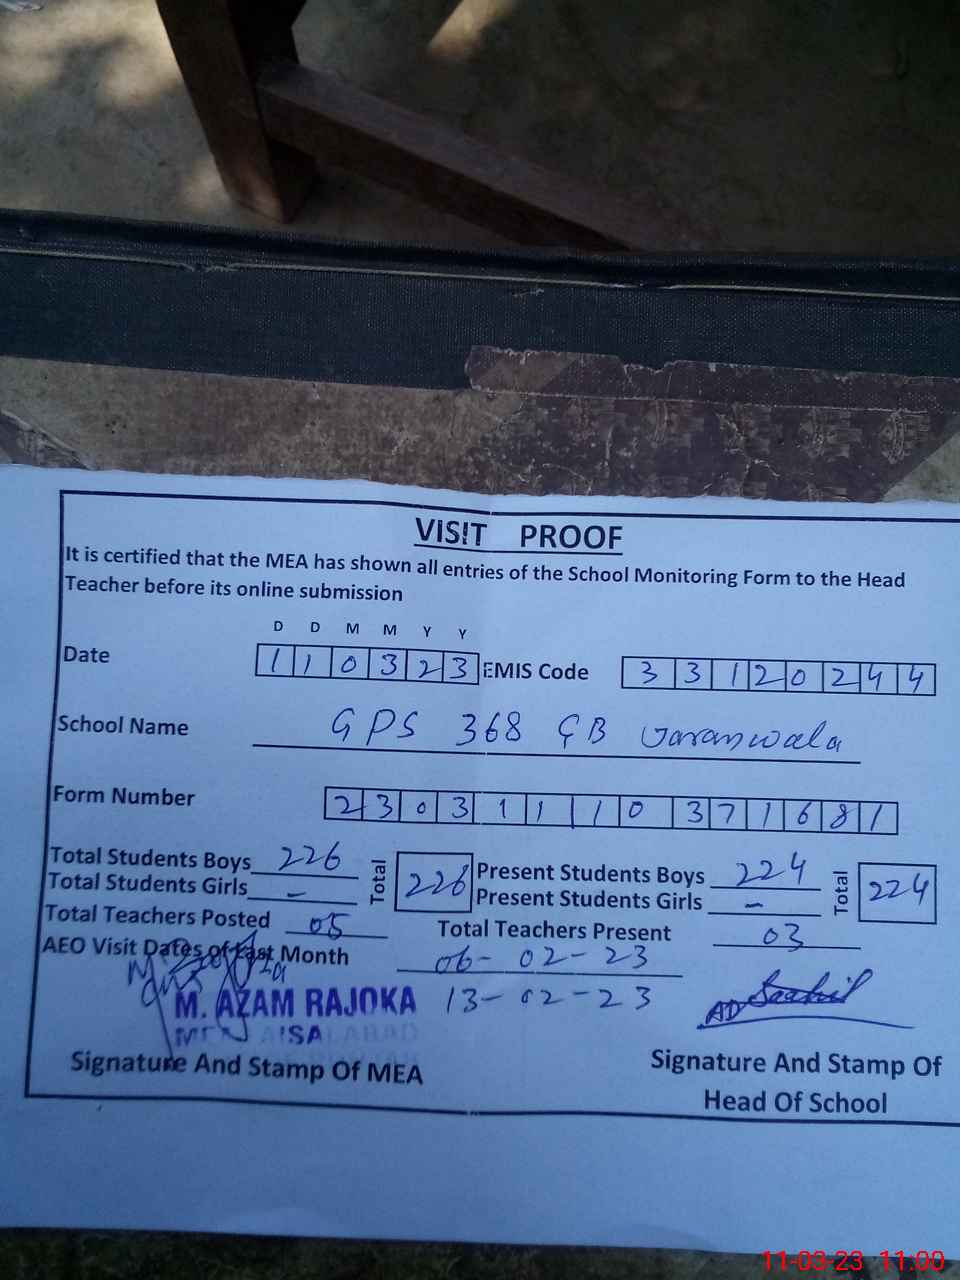 VISIT PROOF
It is certified that the MEA has shown all entries of the School Monitoring Form to the Head
Teacher before its online submission
D D M M Y Y
Date 1 1 0 3 2 3 EMIS Code 3 3 1 2 0 2 4 4
School Name GPS 368 GB
Form Number 2 3 0 3 1 1 1 0 3 7 1 6 8 1
Total Students Boys 226 Total 226 Present Students Boys 224 Total 224
Total Students Girls - Present Students Girls -
Total Teachers Posted 05 Total Teachers Present 03
AEO Visit Dates of Last Month 06-02-23
13-02-23
M. AZAM RAJOKA
Signature And Stamp Of MEA
Signature And Stamp Of
Head Of School
11-03-23 11:00